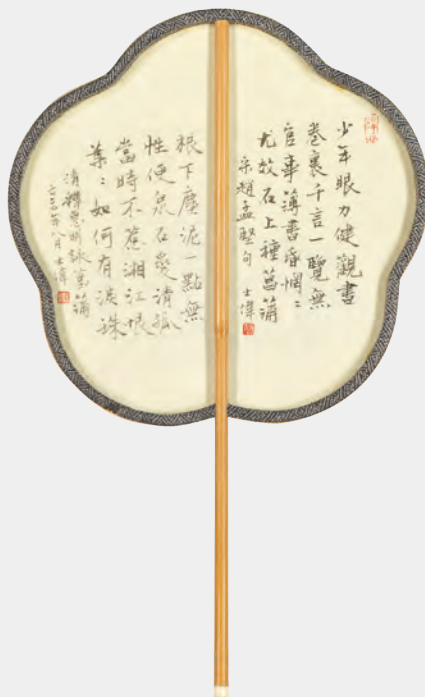 少年眼力健觀書
卷裏千言一覽無
官事薄書昏惘〻
尤放石上種菖蒲
宋趙孟堅句 士偉
根下塵泥一點無
性便泉石愛清孤
當時不惹湘江恨
葉〻如何有淚珠
清釋思明詠菖蒲
年八月士偉